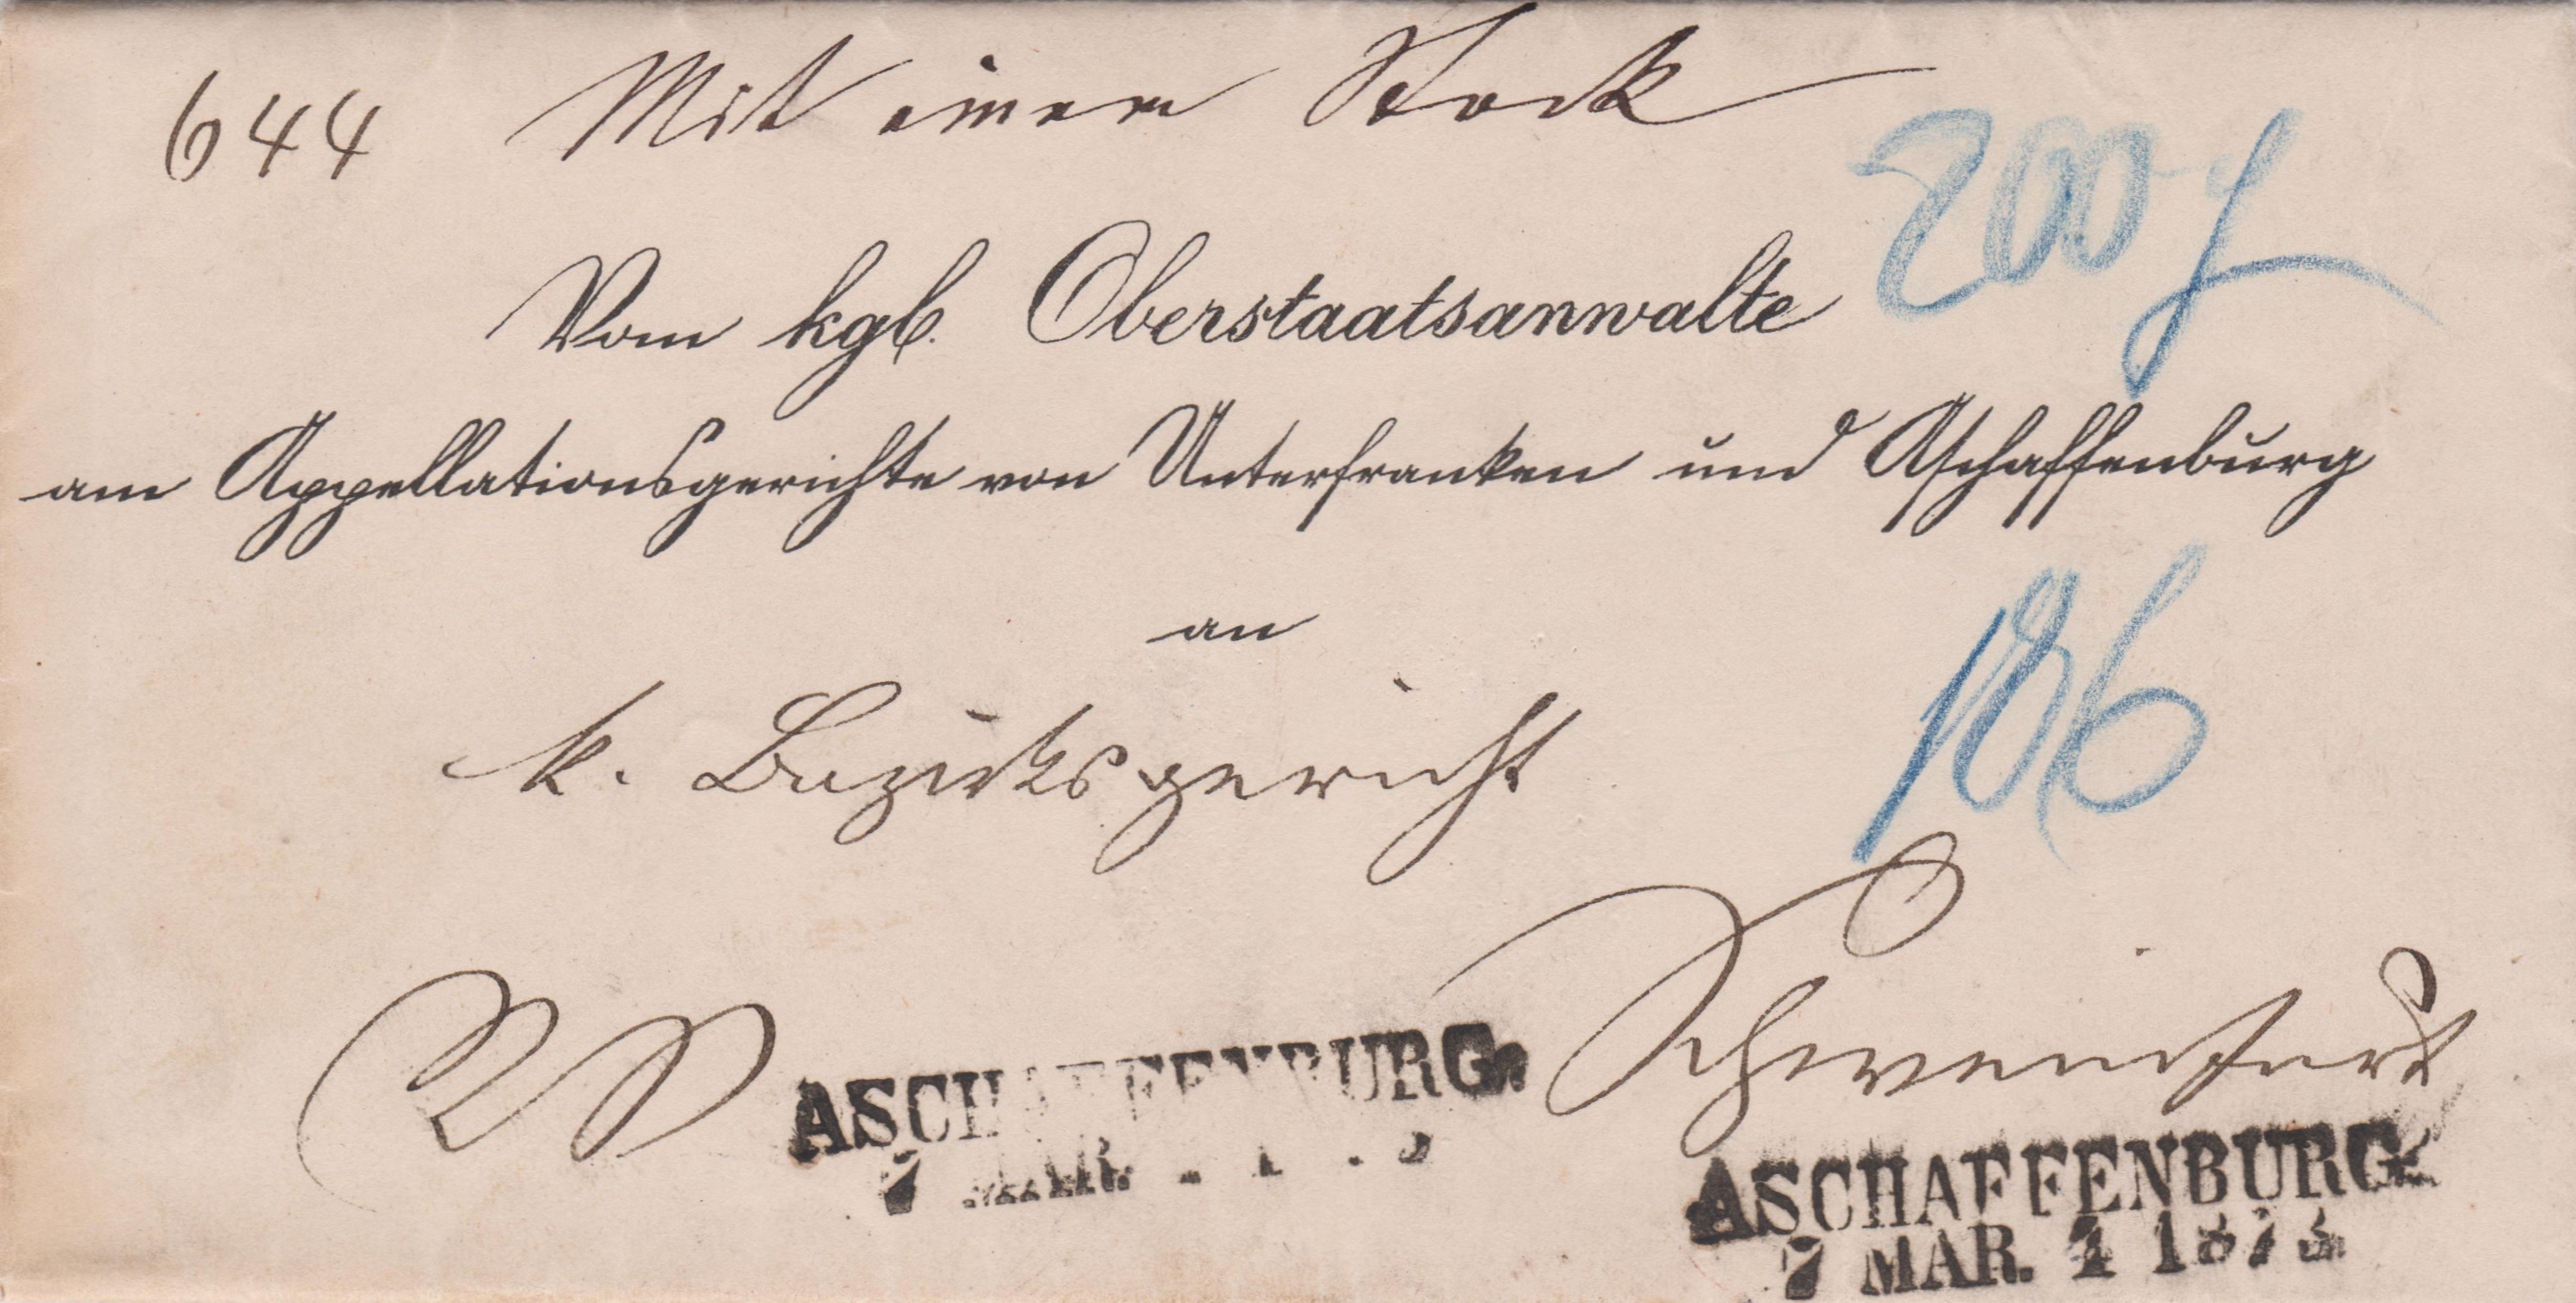 644 Mit einem Stock
200 f
Vom kgb. Oberstaatsanwalte
am Appellationsgerichte von Unterfranken und Aschaffenburg
an
k. Bezirksgericht
Schweinfurt
RS
ASCHAFFENBURG
7 MAR.
ASCHAFFENBURG
7 MAR. 4 1873